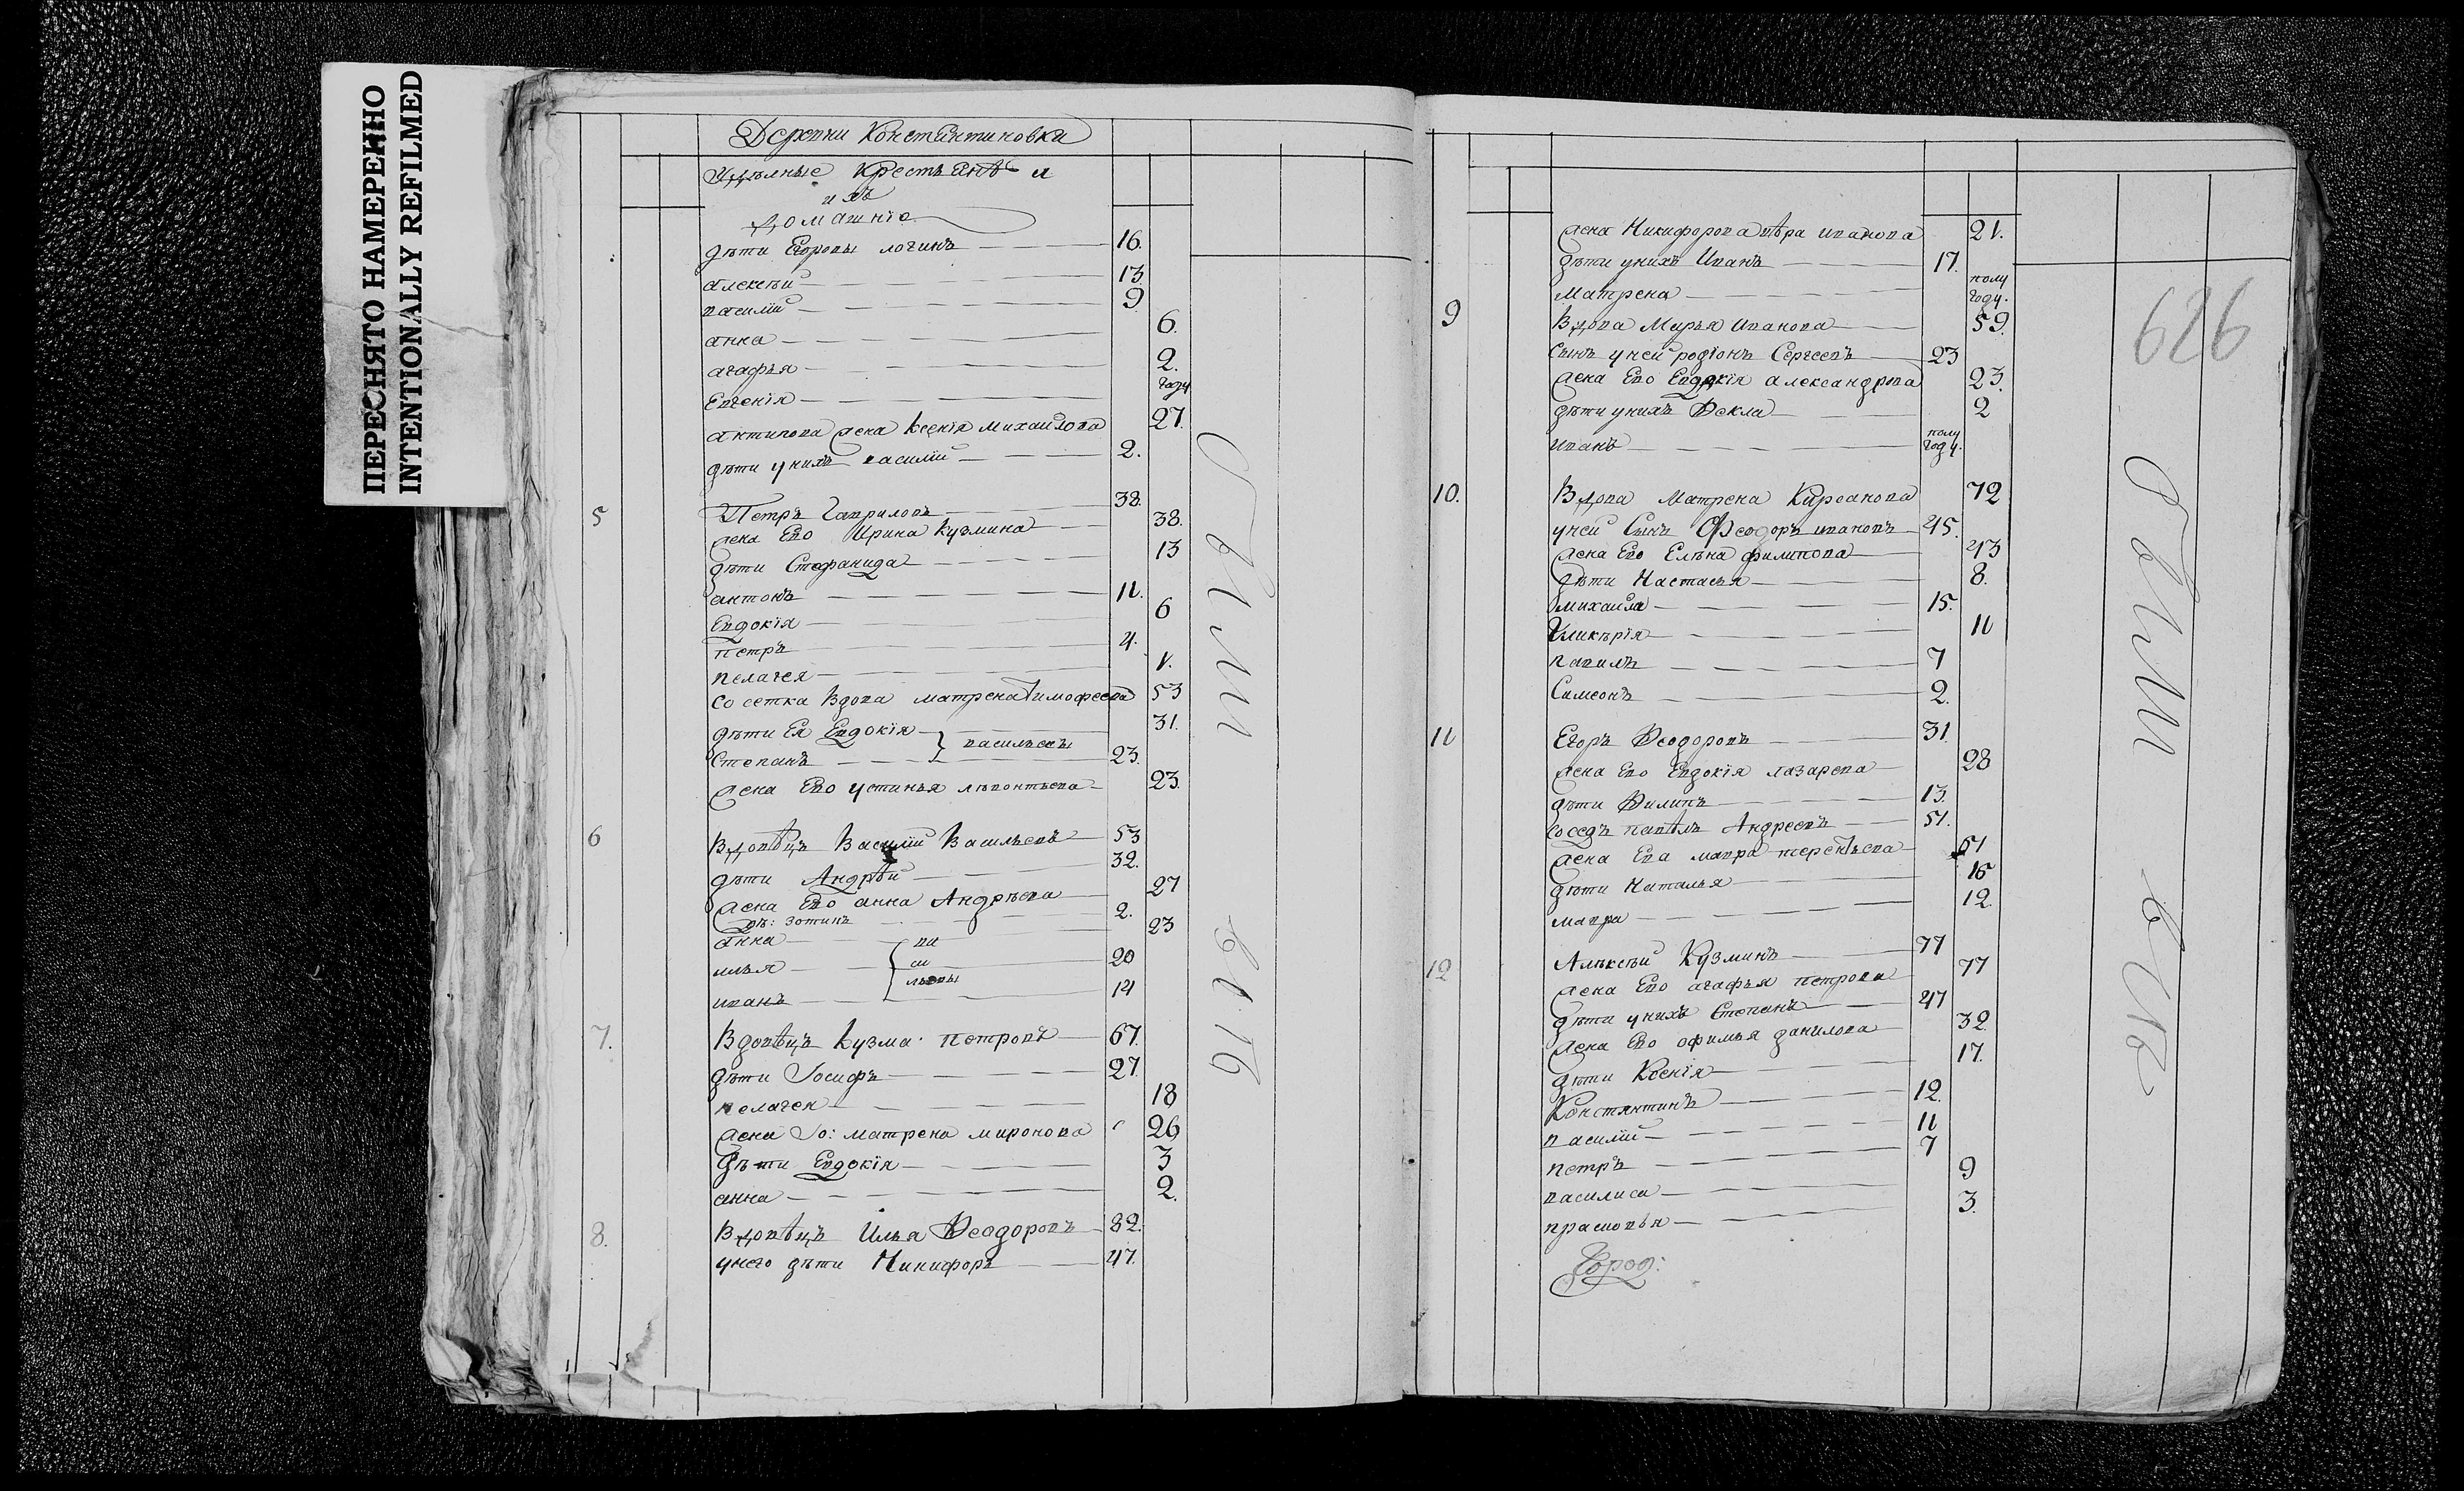 ПЕРЕСНЯТО НАМЕРЕННО
INTENTIONALLY REFILMED
Деревни Константиновки
Удѣлные крестьянѣ и
ихъ
домашніе
дѣти Егоровы логинъ 16.
алексѣй 13.
василій 9
анна 6.
агафья 2.
Евгенія году
антипова жена ксенія михайлова 27.
дѣти у нихъ василій 2.
5 Петръ Гавриловъ 38.
жена Ево Ирина Кузмина 38.
дѣти Стефанида 13
антонъ 11.
Евдокія 6
петръ 4.
пелагея 1.
сосетка вдова матрена тимофеева 53
дѣти Ея Евдокія 31.
васильевы
Степанъ 23.
жена Ево устинья лѣвонтьева 23.
6 Вдовѣцъ Василій Васильевъ 53
дѣти Андрѣй 32.
жена Ево анна Андрѣева 27
дѣ: зотикъ 2.
анна ва 23
илья си 20
иванъ льевы 14
7. Вдовѣцъ кузма петровъ 67.
дѣти Іосифъ 27
пелагея 18
жена Іо: матрена миронова 26
дѣти Евдокія 3
анна 2.
8. Вдовѣцъ Илья Ѳеодоровъ 82.
у него дѣти Никифоръ 47.
были
въ
жена Никифорова вѣра иванова 21.
дѣти у нихъ Иванъ 17.
Матрена полу году.
9 Вдова Марья Иванова 59.
сынъ у ней родіонъ Сергеевъ 23
жена Ево Евдокія александрова 23.
дѣти у нихъ Ѳекла 2
иванъ полу году.
10. Вдова Матрена Кирсанова 72
у ней Сынъ Ѳеодоръ ивановъ 45.
жена Ево Елѣна филипова 43
дѣти Настасья 8.
михайла 15.
Гликѣрія 11
вавилъ 7
Симеонъ 2.
11 Егоръ Ѳеодоровъ 31.
жена Ево Евдокія лазарева 28
дѣти Филипъ 13.
соседъ павѣлъ Андреевъ 51.
жена Ева мавра терентьева 51
дѣти Наталья 15
мавра 12.
12 Алѣксѣй Кузминъ 77
жена Ево агафья петрова 77
дѣти у нихъ Степанъ 47
жена Ево офимья данилова 32
дѣти Ксенія 17.
Константинъ 12.
василій 11
петръ 7
василиса 9
прасковья 3.
626
были